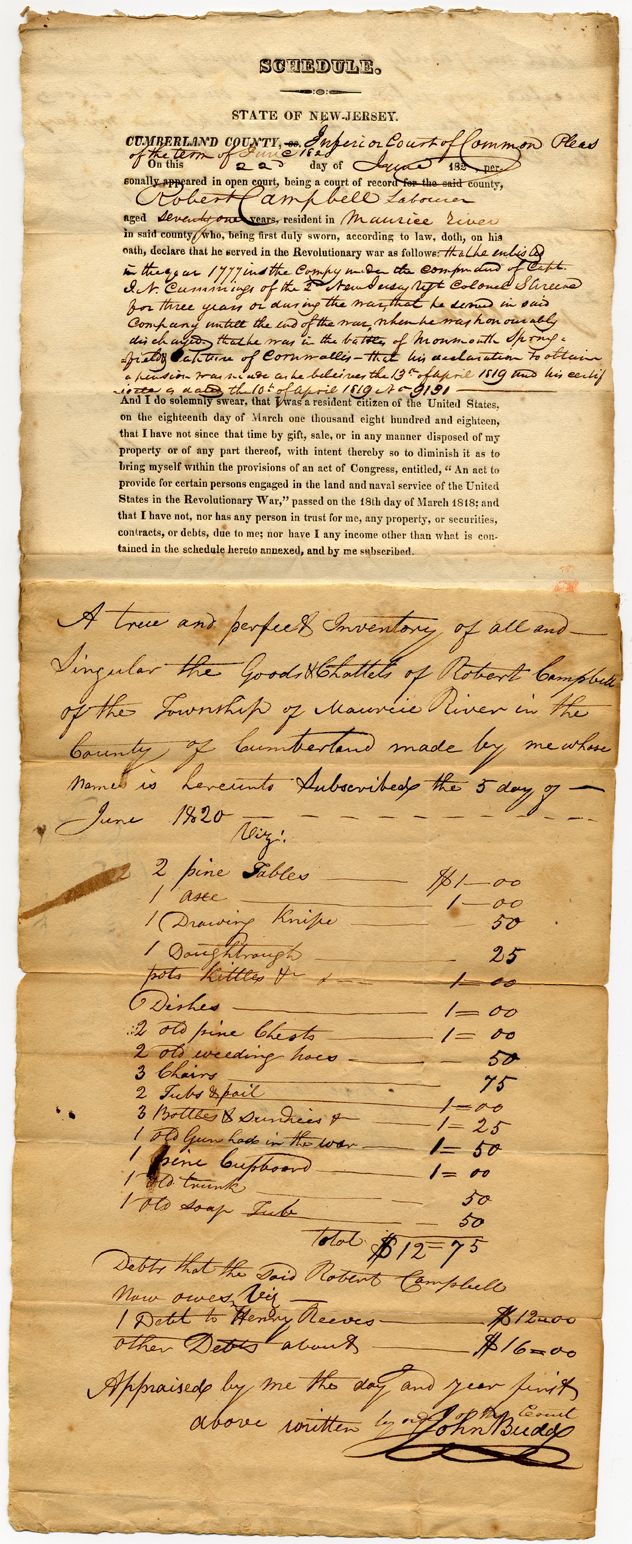 SCHEDULE.
STATE OF NEW-JERSEY.
CUMBERLAND COUNTY, ss. Inferior Court of Common Pleas
of the term of June 1820
On this 22d day of June 182 , per-
sonally appeared in open court, being a court of record for the said county,
Robert Campbell Labourer
aged seventy one years, resident in Maurice River
in said county, who, being first duly sworn, according to law, doth, on his
oath, declare that he served in the Revolutionary war as follows: that he enlisted
in the year 1777 in the Compy under the command of Capt.
J. N. Cummings of the 2d New Jersey Regt Colonel Shreeve
for three years or during the war, that he served in said
Company untill the end of the war, when he was honourably
discharged, that he was in the battles of Monmouth Spring-
field & Capture of Cornwallis – that his declaration to obtain
a pension was made as he believes the 13th of April 1819 and his certif
icate is dated the 10th of April 1819 No 9131
And I do solemnly swear, that I was a resident citizen of the United States,
on the eighteenth day of March one thousand eight hundred and eighteen,
that I have not since that time by gift, sale, or in any manner disposed of my
property or of any part thereof, with intent thereby so to diminish it as to
bring myself within the provisions of an act of Congress, entitled, “ An act to
provide for certain persons engaged in the land and naval service of the United
States in the Revolutionary War,” passed on the 18th day of March 1818; and
that I have not, nor has any person in trust for me, any property, or securities,
contracts, or debts, due to me; nor have I any income other than what is con-
tained in the schedule hereto annexed, and by me subscribed.
A true and perfect Inventory of all and —
Singular the Goods & Chattels of Robert Campbell
of the Township of Maurcie River in the
County of Cumberland made by me whose
names is hereunto Subscribed the 5 day of —
June 1820
Viz:
2 pine Tables $1—00
1 axe 1—00
1 Drawing Knife 50
1 Doughtrough 25
pots kittles &c 1=00
6 Dishes 1=00
2 old pine Chests 1=00
2 old weeding hoes 50
3 Chairs 75
2 Tubs & pail 1=00
3 Bottles & Sundries 1=25
1 old Gun had in the war 1=50
1 pine Cupboard 1=00
1 old trunk 50
1 old soap Tub 50
total $12=75
Debts that the Said Robert Campbell
Now owes, Viz —
1 Debt to Henry Reeves $12=00
other Debts about $16=00
Appraised by me the day and year first
above written by order of the Court
John Budd